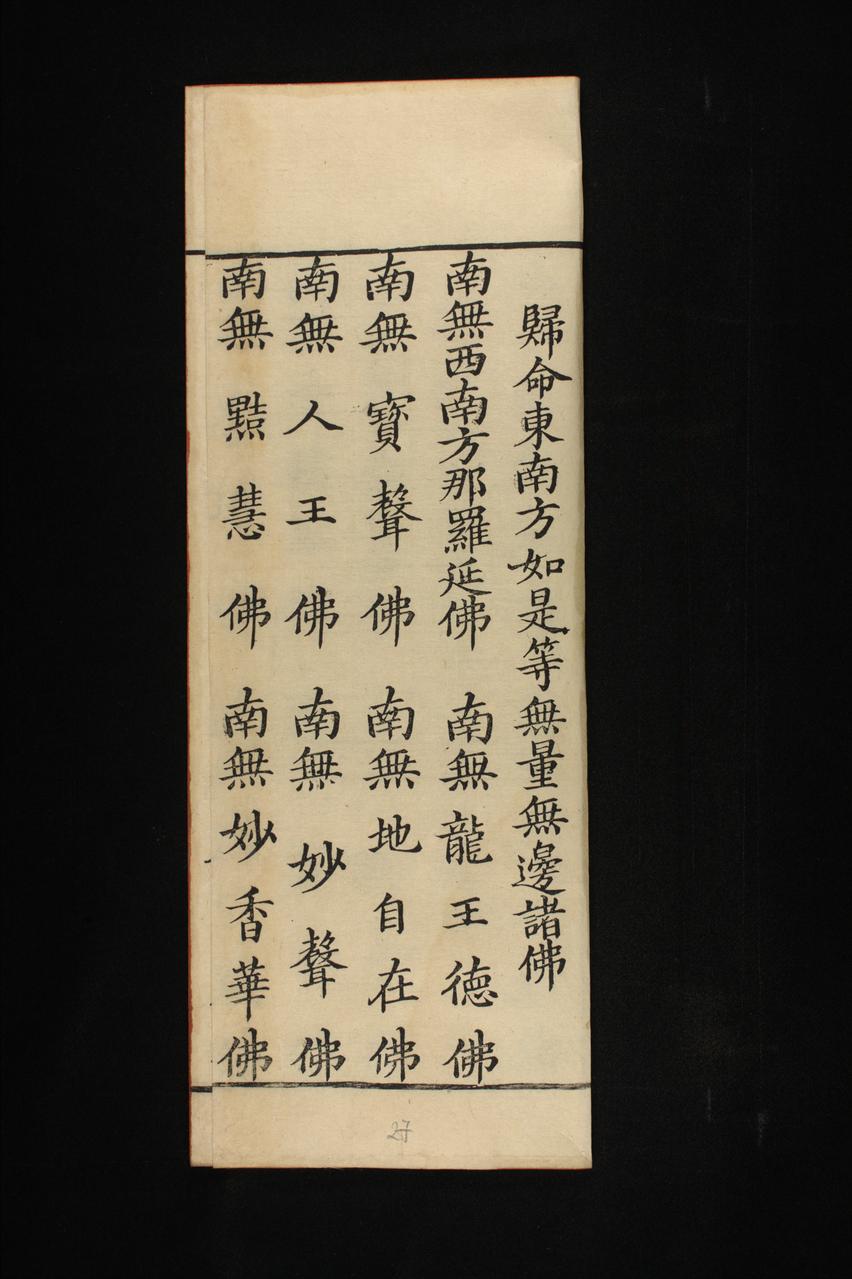 歸命東南方如是等無量無邊諸佛
南無西南方那羅延佛　南無龍王德佛
南無寶聲佛　南無地自在佛
南無人王佛　南無妙聲佛
南無黠慧佛　南無妙香華佛
27